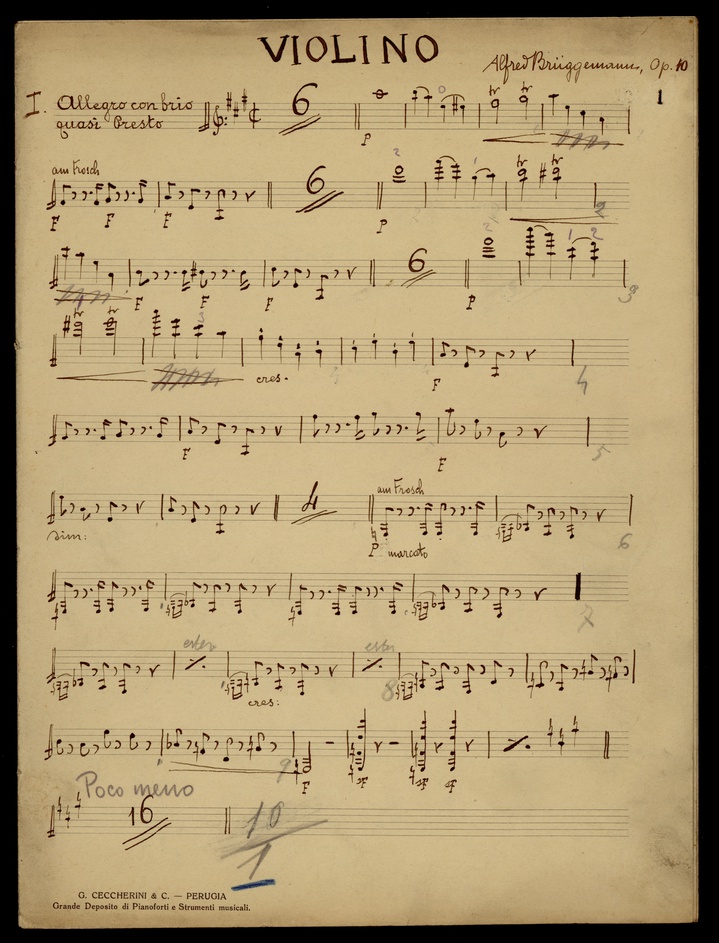 VIOLINO
Alfred Brüggemann, Op. 10
1
I. Allegro con brio
quasi Presto
6
P
am Frosch
F F F F
6
P
2
F F F
6
P
3
cres.
F
4
F
F
5
sim:
4
am Frosch
P marcato
6
7
cres:
8
9
F sF sF sF
Poco meno
16
10
1
G. CECCHERINI & C. — PERUGIA
Grande Deposito di Pianoforti e Strumenti musicali.